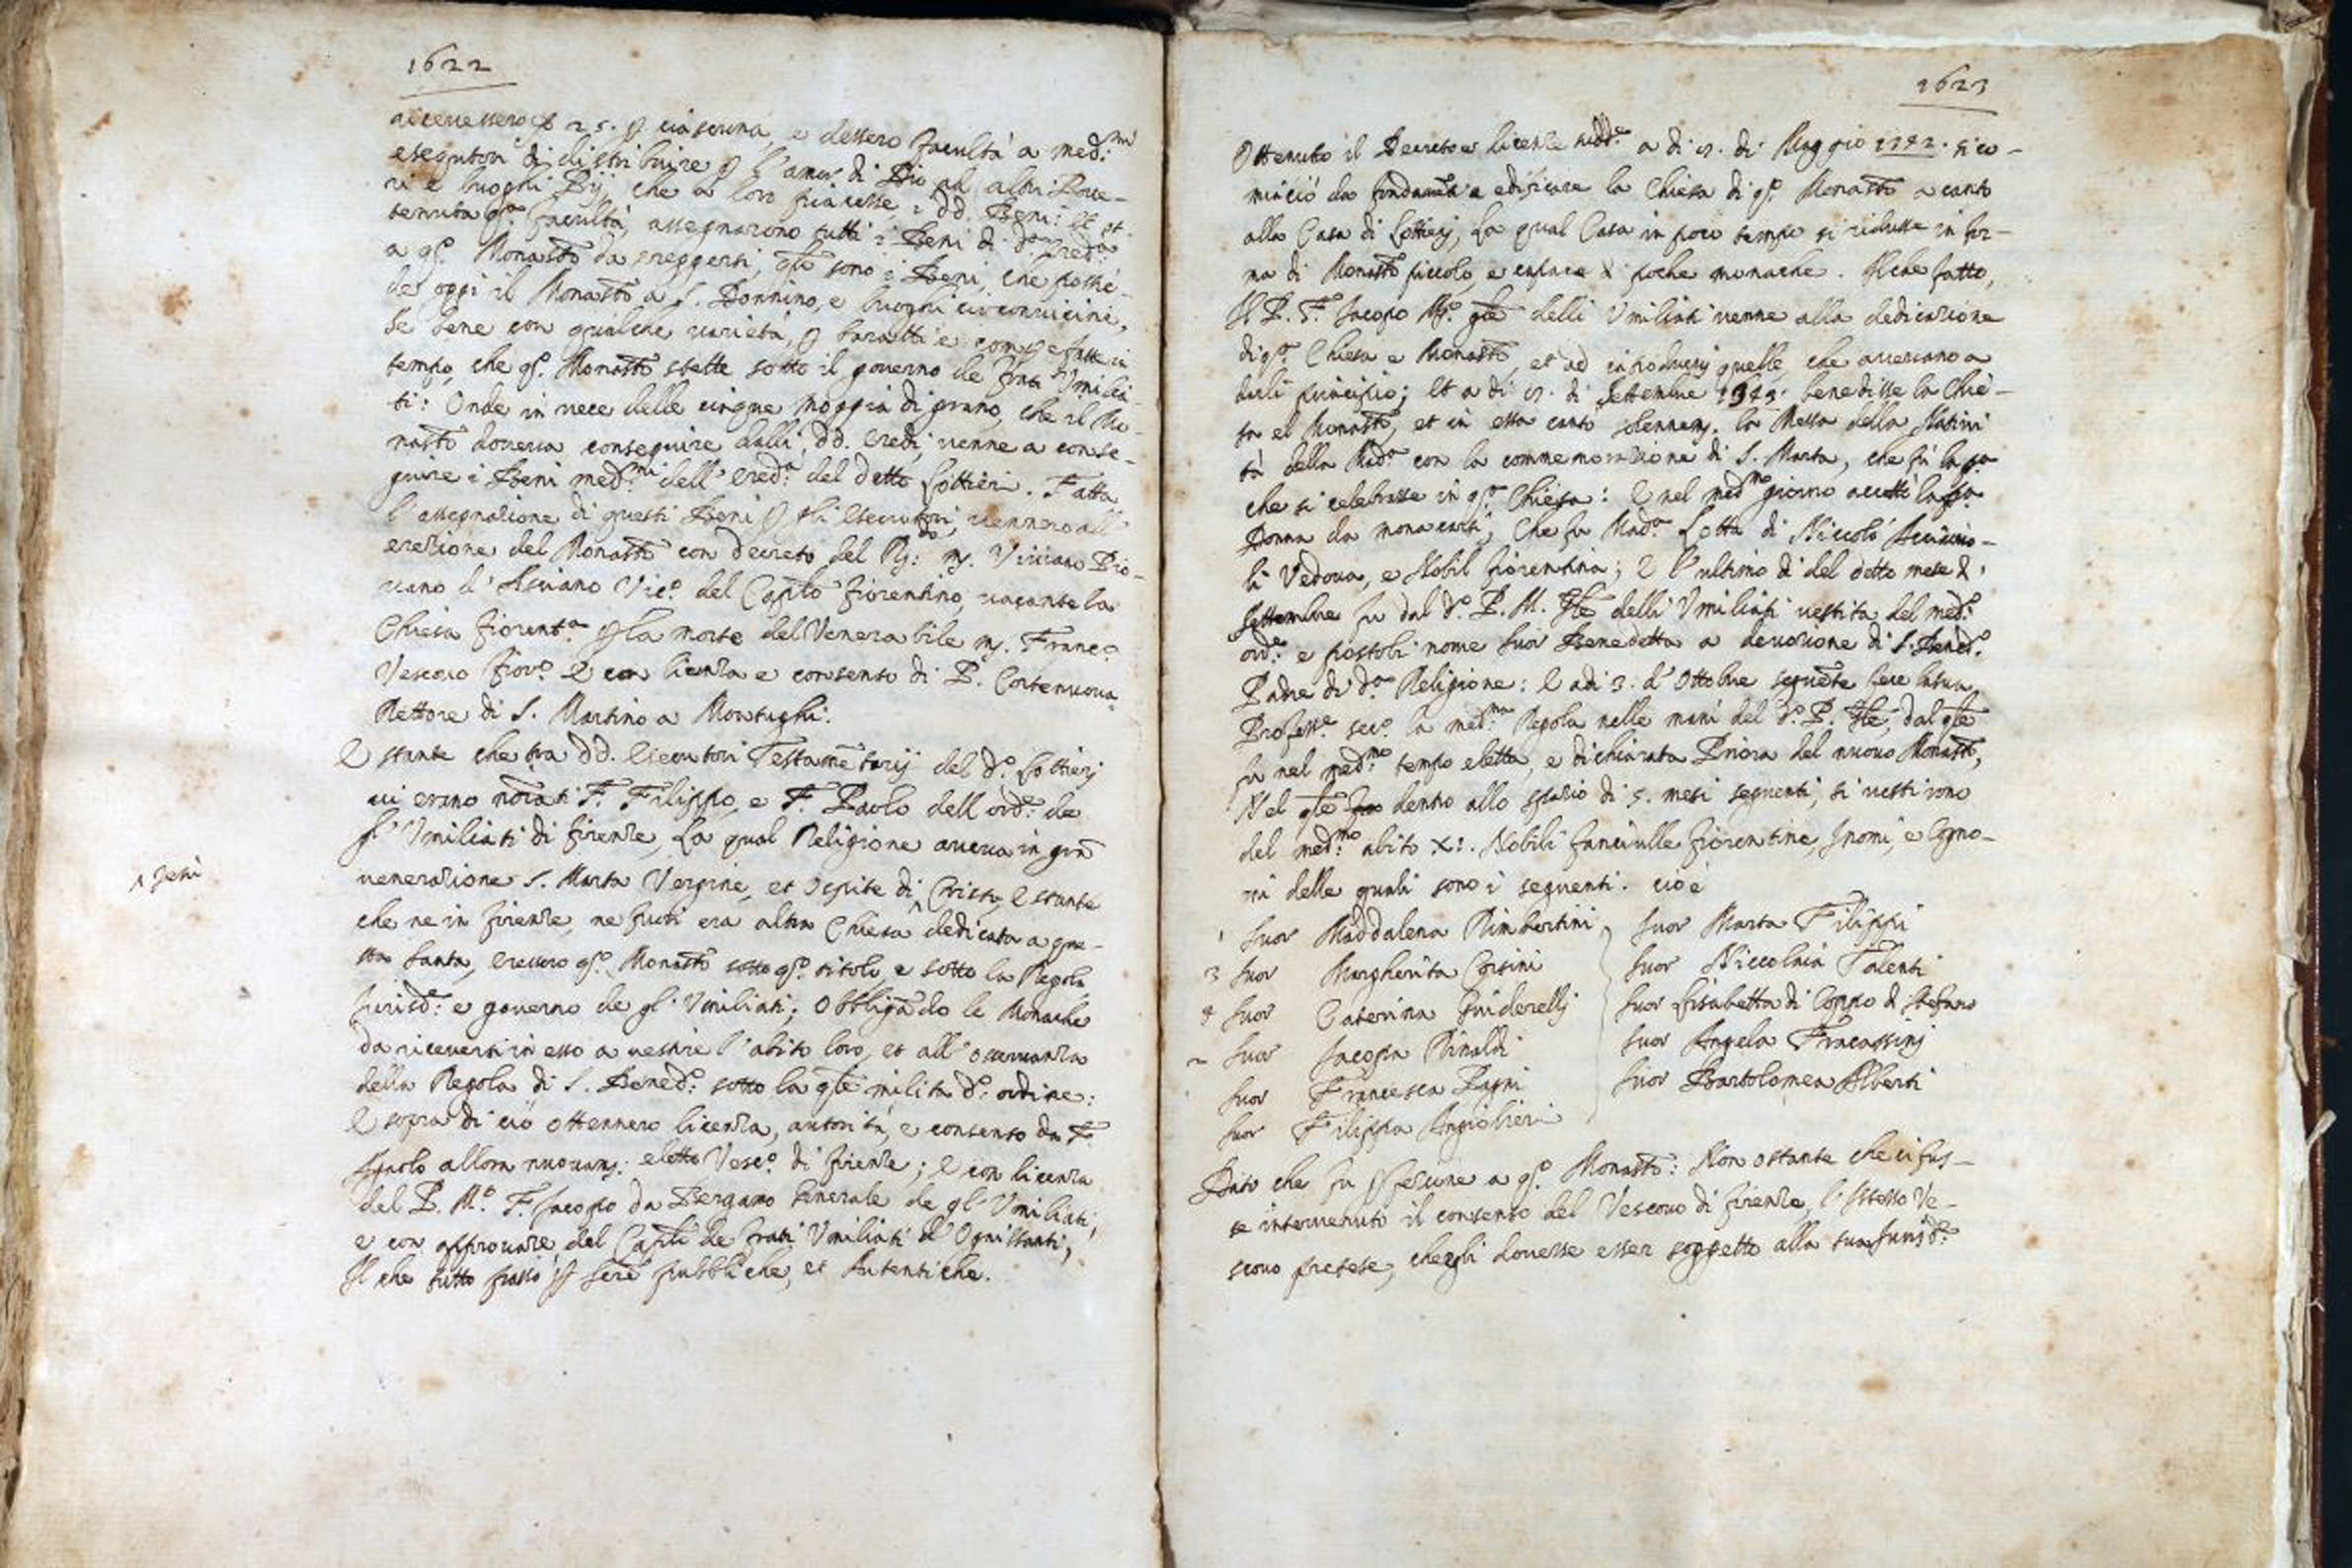 1622
25. ꝑ ciascuna, e dessero facultà a med:mi
esegutori di distribuire ꝑ l'amor di Dio ad altri Pove-
ri e luoghi Pij, che a loro piacesse, i dd. Beni: Et ot-
tenuta qa. facultà, assegnarono tutti i Beni di da. Ereda.
a qo. Monasto da ereggersi, qli sono i Beni, che possie-
de oggi il Monasto a S. Donnino, e luoghi circonvicini,
se bene con qualche varietà, ꝑ baratti e fatte in
tempo, che qo. Monasto stette sotto il governo de frati Umilia-
ti: Onde in vece delle cinque moggia di grano, che il Mo-
nasto doveva conseguire dalli dd. Eredi, venne a conse-
guire i Beni med:mi dell'ered:a del detto Lottieri. Fatta
l'assegnazione di questi Beni ꝑ gli Esecutori, vennero all'
erezione del Monasto con decreto del R: m. Viviano Pio-
vano d' Vico. del Capito Fiorentino, vacante la
Chiesa Fiorenta. ꝑ la morte del Venerabile m. Franco.
Vescovo Fioro. E con licenza e consenso di P. Cortenuova
Rettore di S. Martino a Montughi.
E stante che tra dd. Esecutori Testamētarij del do. Lottierj
vi erano noīati F. Filippo, e F. Paolo dell'ord:e de
gl'Umiliati di Firenze, La qual Religione aveva in grā
venerazione S. Marta Vergine, et Ospite di ^ Cristo, E stante
^ Gesù
che ne in Firenze, ne fuori era altra Chiesa dedicata a que-
sta Santa, Eressero qo. Monasto sotto qo. titolo, e sotto la Regola
Jurisd:e e governo de gl'Umiliati; Obbligādo le Monache
da riceversi in esso a vestire l'abito loro, et all'osservanza
della Regola di S. Bened:o sotto la qle milita do. ordine:
E sopra di ciò ottennero licenza, autorità, e consenso da F.
Agnolo allora nuovam: eletto Vesco. di Firenze; E con licenza
del P. Mo. F. Jacopo da Bergamo Generale de gl'Umiliati,
e con approvare del Capito de frati Umiliati d'Ognissanti;
Il che tutto passò ꝑ scrē pubbliche, et Autentiche.
1623
Ottenuto il Decreto e licenze sudde. a di di Maggio 1342. si co-
minciò da fondamēti a edificare la Chiesa di qo. Monasto a canto
alla Casa di Lottierj, La qual Casa in poco tempo si ridusse in for-
ma di Monasto piccolo, e capace ꝑ poche monache. Il che fatto,
Il P. F. Jacopo Mo. gle delli Umiliati venne alla dedicazione
di qa. Chiesa e Monasto, et ad introdurvj quelle, che avevano a
darli principio; Et a di di Settembre 1343. benedisse la Chie-
sa e l Monasto, et in essa cantò solennem. la Messa della Nativi-
tà della Mada. con la commemorazione di S. Marta, che fù la pa.
che si celebrasse in qa. Chiesa: E nel med:mo giorno accettò la pa.
Donna da monacarsi, Che fu Mada. Lotta di Niccolò Acciaiuo-
li Vedova, e Nobil Fiorentina; E l'ultimo di del detto mese di
Settembre fu dal do. P. M. Gle delli Umiliati vestita del med:o
ord:e e postoli nome Suor Benedetta a devozione di S. Bened:o
Padre di da. Religione: E adi 3. d'Ottobre seguēte fece la sua
Professe. seco. la med:ma Regola nelle mani del do. P. Gle, dal qle
fu nel med:mo tempo eletta, e dichiarata Priora del nuovo Monasto,
Nel qle dentro allo spazio di 5. mesi seguenti, si vestirono
del med:mo abito XI. Nobili fanciulle Fiorentine, I nomi, e Cogno-
mi delle quali sono i seguenti. cioè
1 Suor Maddalena Rimbertini
3 Suor Margherita Corsini
4 Suor Caterina Guiderellj
2 Suor Jacopa Rinaldi
Suor Francesca Pagni
Suor Filippa Angiolieri
Suor Marta Filippi
Suor Niccolaia Talenti
Suor Lisabetta di Coppo di Stefano
Suor Angela Fracassinj
Suor Bartolomea Alberti
Dato che fu ꝑfezione a qo. Monasto: Non ostante che ci fus-
se intervenuto il consenso del Vescovo di Firenze, l'istesso Ve-
scovo pretese, che egli dovesse esser soggetto alla sua Jurisde.